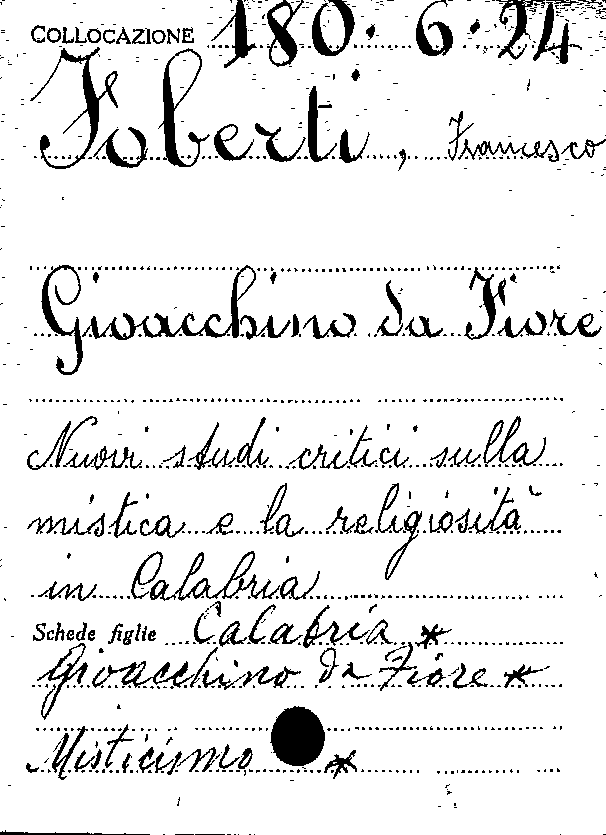 COLLOCAZIONE 180.6.24
Foberti, Francesco
Gioacchino da Fiore
Nuovi studi critici sulla
mistica e la religiosità
in Calabria
Schede figlie Calabria *
Gioacchino da Fiore *
Misticismo *